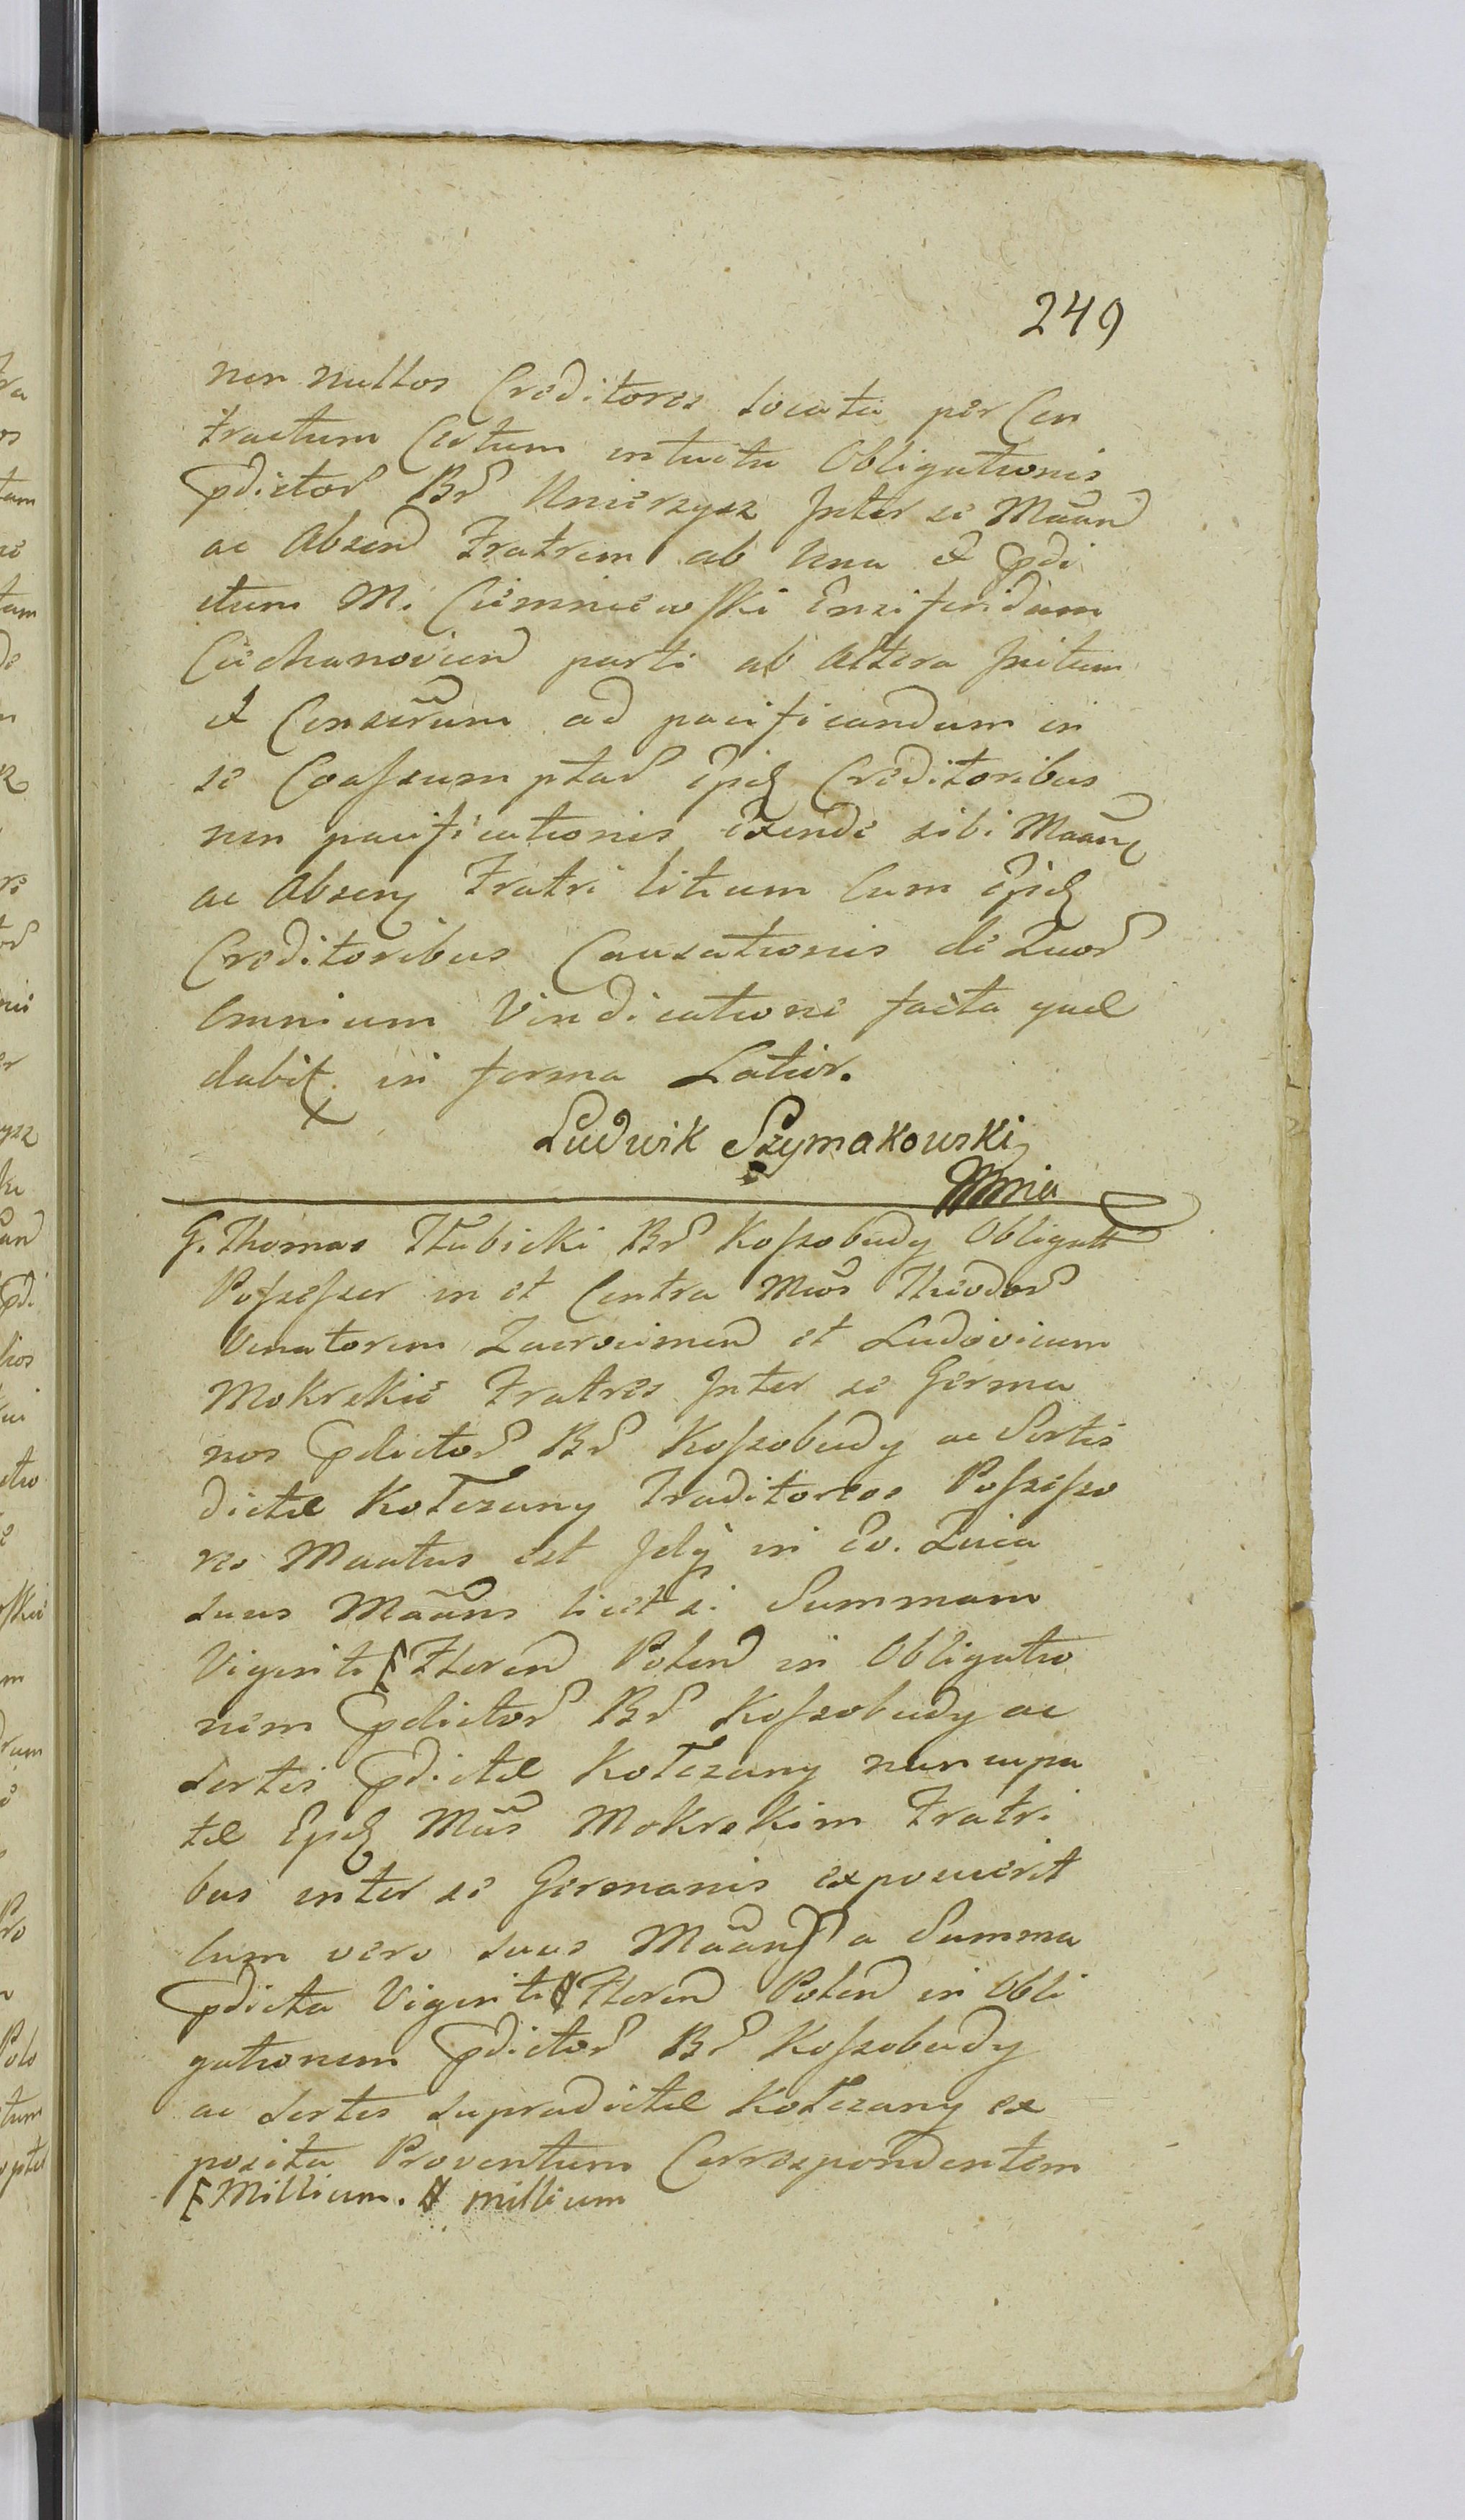 249
non nullos Creditores locata per Con
tractum Certum intuitu Obligationis
pdictor Br Unierzysz Inter se Maan
ac Absen Fratrem ab una et pdi
ctum M. Ciemniewski Ensiferidam
Ciechanovien parti ab altera Initum
et Conserum ad pacificandum in
se Coassumptar ipis Creditoribus
non pacificationis exinde sibi Maan
ac Absen Fratri litium Cum ipis
Creditoribus Causationis de Quor
Omnium Vindicatione facta quae
dabit in forma Latior.
Ludwik Szymakowski
Mmia
G. Thomas Tłubicki Br Kossobudy Obligatt
Possessor in et Contra Mcos Theodor
Venatorem Zacrocimen et Ludovicum
Mokrskie Fratres Inter se Germa
nos pdictor Br Kossobudy ac Sortis
dictae Kołczany Traditoreos Possesso
res Maatus est Idq in Eo. Quia
suus Maans licet s. Summam
Viginti [Floren Polon in Obligatio
nem pdictor Br Kossobudy ac
Sortis pdictae Kołczany nuncupa
tae Ipis Mcis Mokrskim Fratri
bus inter se Germanis exposuerit
Cum vero suus Maans a Summa
pdicta Viginti # Floren Polon in Obli
gationem pdictor Br Kossobudy
ac Sortis supradictae Kołczany ex
posita Proventum Correspondentem
[Millium. # millium